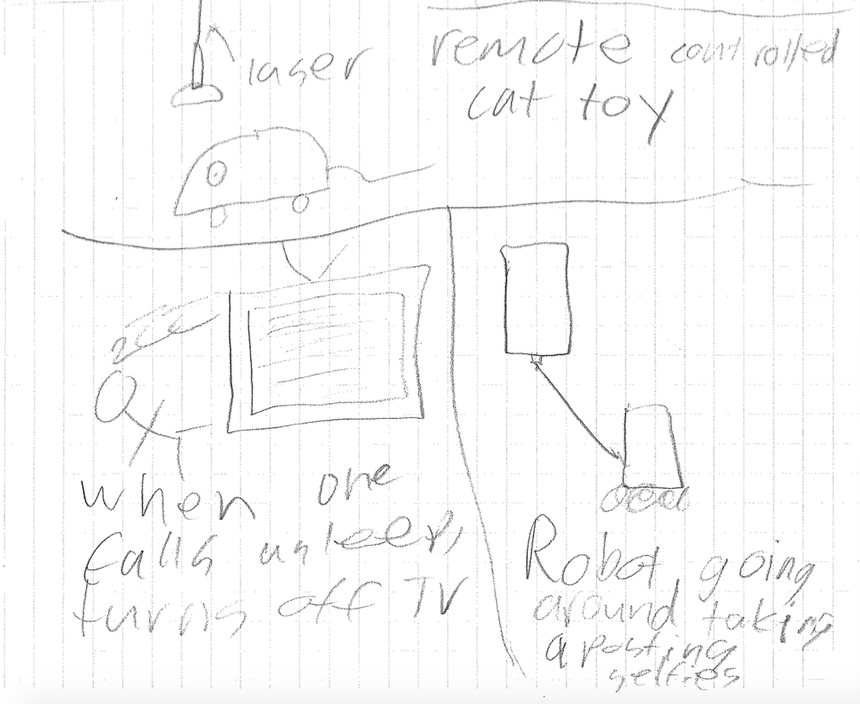 laser
remote controlled
cat toy
zzz
when one
falls asleep,
turns off TV
Robot going
around taking
a posting
selfies